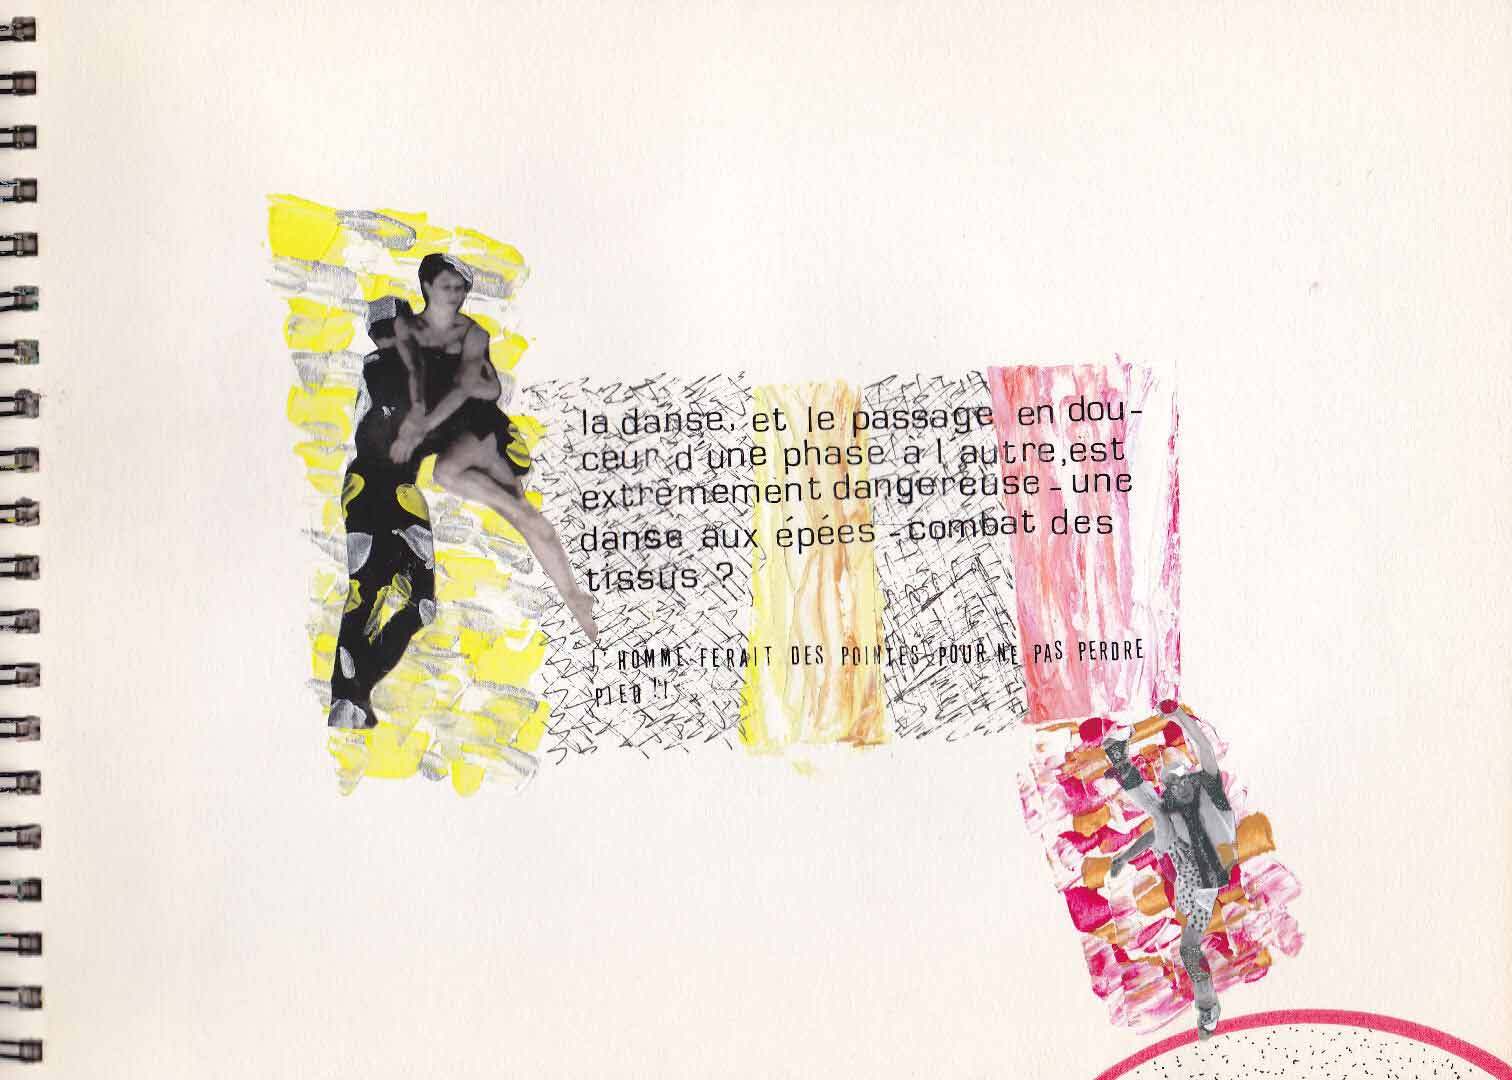 la danse, et le passage en dou-
ceur d'une phase à l'autre, est
extrêmement dangereuse - une
danse aux épées - combat des
tissus ?
L'HOMME FERAIT DES POINTES POUR NE PAS PERDRE
PIED !!